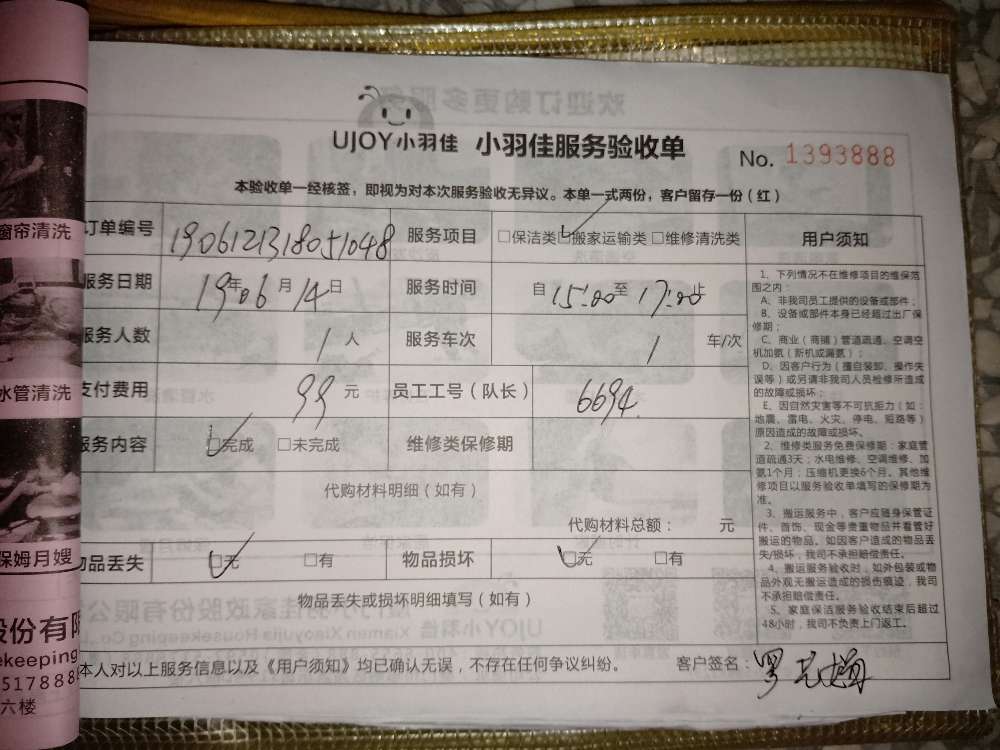 UJOY小羽佳 小羽佳服务验收单 No. 1393888
本验收单一经核签，即视为对本次服务验收无异议。本单一式两份，客户留存一份（红）
订单编号 1906121318051048 服务项目 □保洁类 ☑搬家运输类 □维修清洗类 用户须知
服务日期 19年06月14日 服务时间 自15:00至17:00止
服务人数 1人 服务车次 1 车/次
支付费用 99元 员工工号（队长） 6694
服务内容 ☑完成 □未完成 维修类保修期
代购材料明细（如有）
代购材料总额： 元
物品丢失 ☑无 □有 物品损坏 ☑无 □有
物品丢失或损坏明细填写（如有）
本人对以上服务信息以及《用户须知》均已确认无误，不存在任何争议纠纷。 客户签名：
1、下列情况不在维修项目的维保范
围之内：
A、非我司员工提供的设备或部件；
B、设备或部件本身已经超过出厂保
修期；
C、商业（商铺）管道疏通、空调空
机加氨（新机或漏氨）；
D、因客户行为（擅自装卸、操作失
误等）或另请非我司人员检修所造成
的故障或损坏；
E、因自然灾害等不可抗拒力（如：
地震、雷电、火灾、停电、短路等）
原因造成的故障或损坏。
2、维修类服务免费保修期：家庭管
道疏通3天；水电维修、空调维修、加
氨1个月；压缩机更换6个月。其他维
修项目以服务验收单填写的保修期为
准。
3、搬运服务中，客户应随身保管证
件、首饰、现金等贵重物品并看管好
搬运的物品。如因客户造成的物品丢
失/损坏，我司不承担赔偿责任。
4、搬运服务验收时，如外包装或物
品外观无搬运造成的损伤痕迹，我司
不承担赔偿责任。
5、家庭保洁服务验收结束后超过
48小时，我司不负责上门返工。
窗帘清洗
水管清洗
保姆月嫂
股份有限
ekeeping
517888
六楼
欢迎订购更多服务